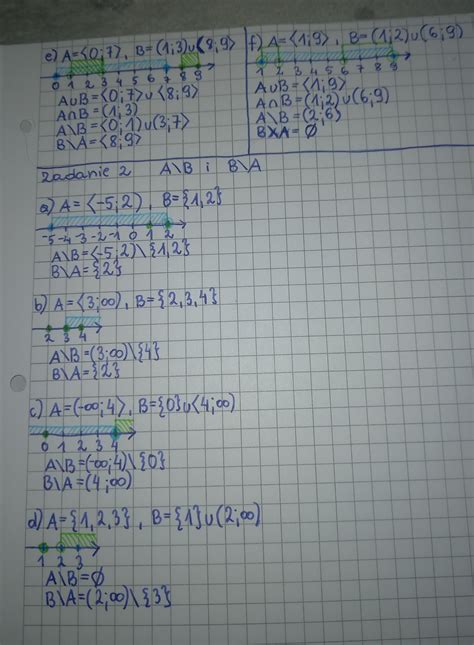 e) A=⟨0;7⟩, B=(1;3)∪⟨8;9⟩
0 1 2 3 4 5 6 7 8 9
A∪B=⟨0;7⟩∪⟨8;9⟩
A∩B=(1;3)
A\B=⟨0;1)∪(3;7⟩
B\A=⟨8;9⟩
f) A=⟨1;9⟩, B=(1;2)∪(6;9)
1 2 3 4 5 6 7 8 9
A∪B=⟨1;9⟩
A∩B=(1;2)∪(6;9)
A\B=(2;6)
B\A=∅
Zadanie 2 A\B i B\A
a) A=⟨-5;2), B={1,2}
-5 -4 -3 -2 -1 0 1 2
A\B=⟨-5;2)\{1,2}
B\A={2}
b) A=⟨3;∞), B={2,3,4}
2 3 4
A\B=(3;∞)\{4}
B\A={2}
c) A=(-∞;4⟩, B={0}∪⟨4;∞)
0 1 2 3 4
A\B=(-∞;4)\{0}
B\A=(4;∞)
d) A={1,2,3}, B={1}∪(2;∞)
1 2 3
A\B=∅
B\A=(2;∞)\{3}